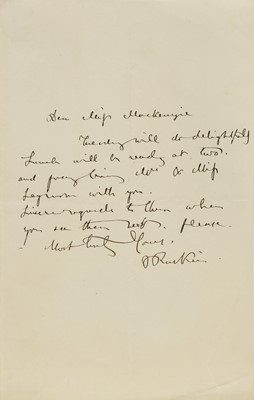 Dear Miss Mackenzie
Tuesday will do delightfully
Lunch will be ready at two.
and pray bring Mr & Miss
with you.
Sincere regards to them when
you see them next, please.
Most truly Yours,
J Ruskin